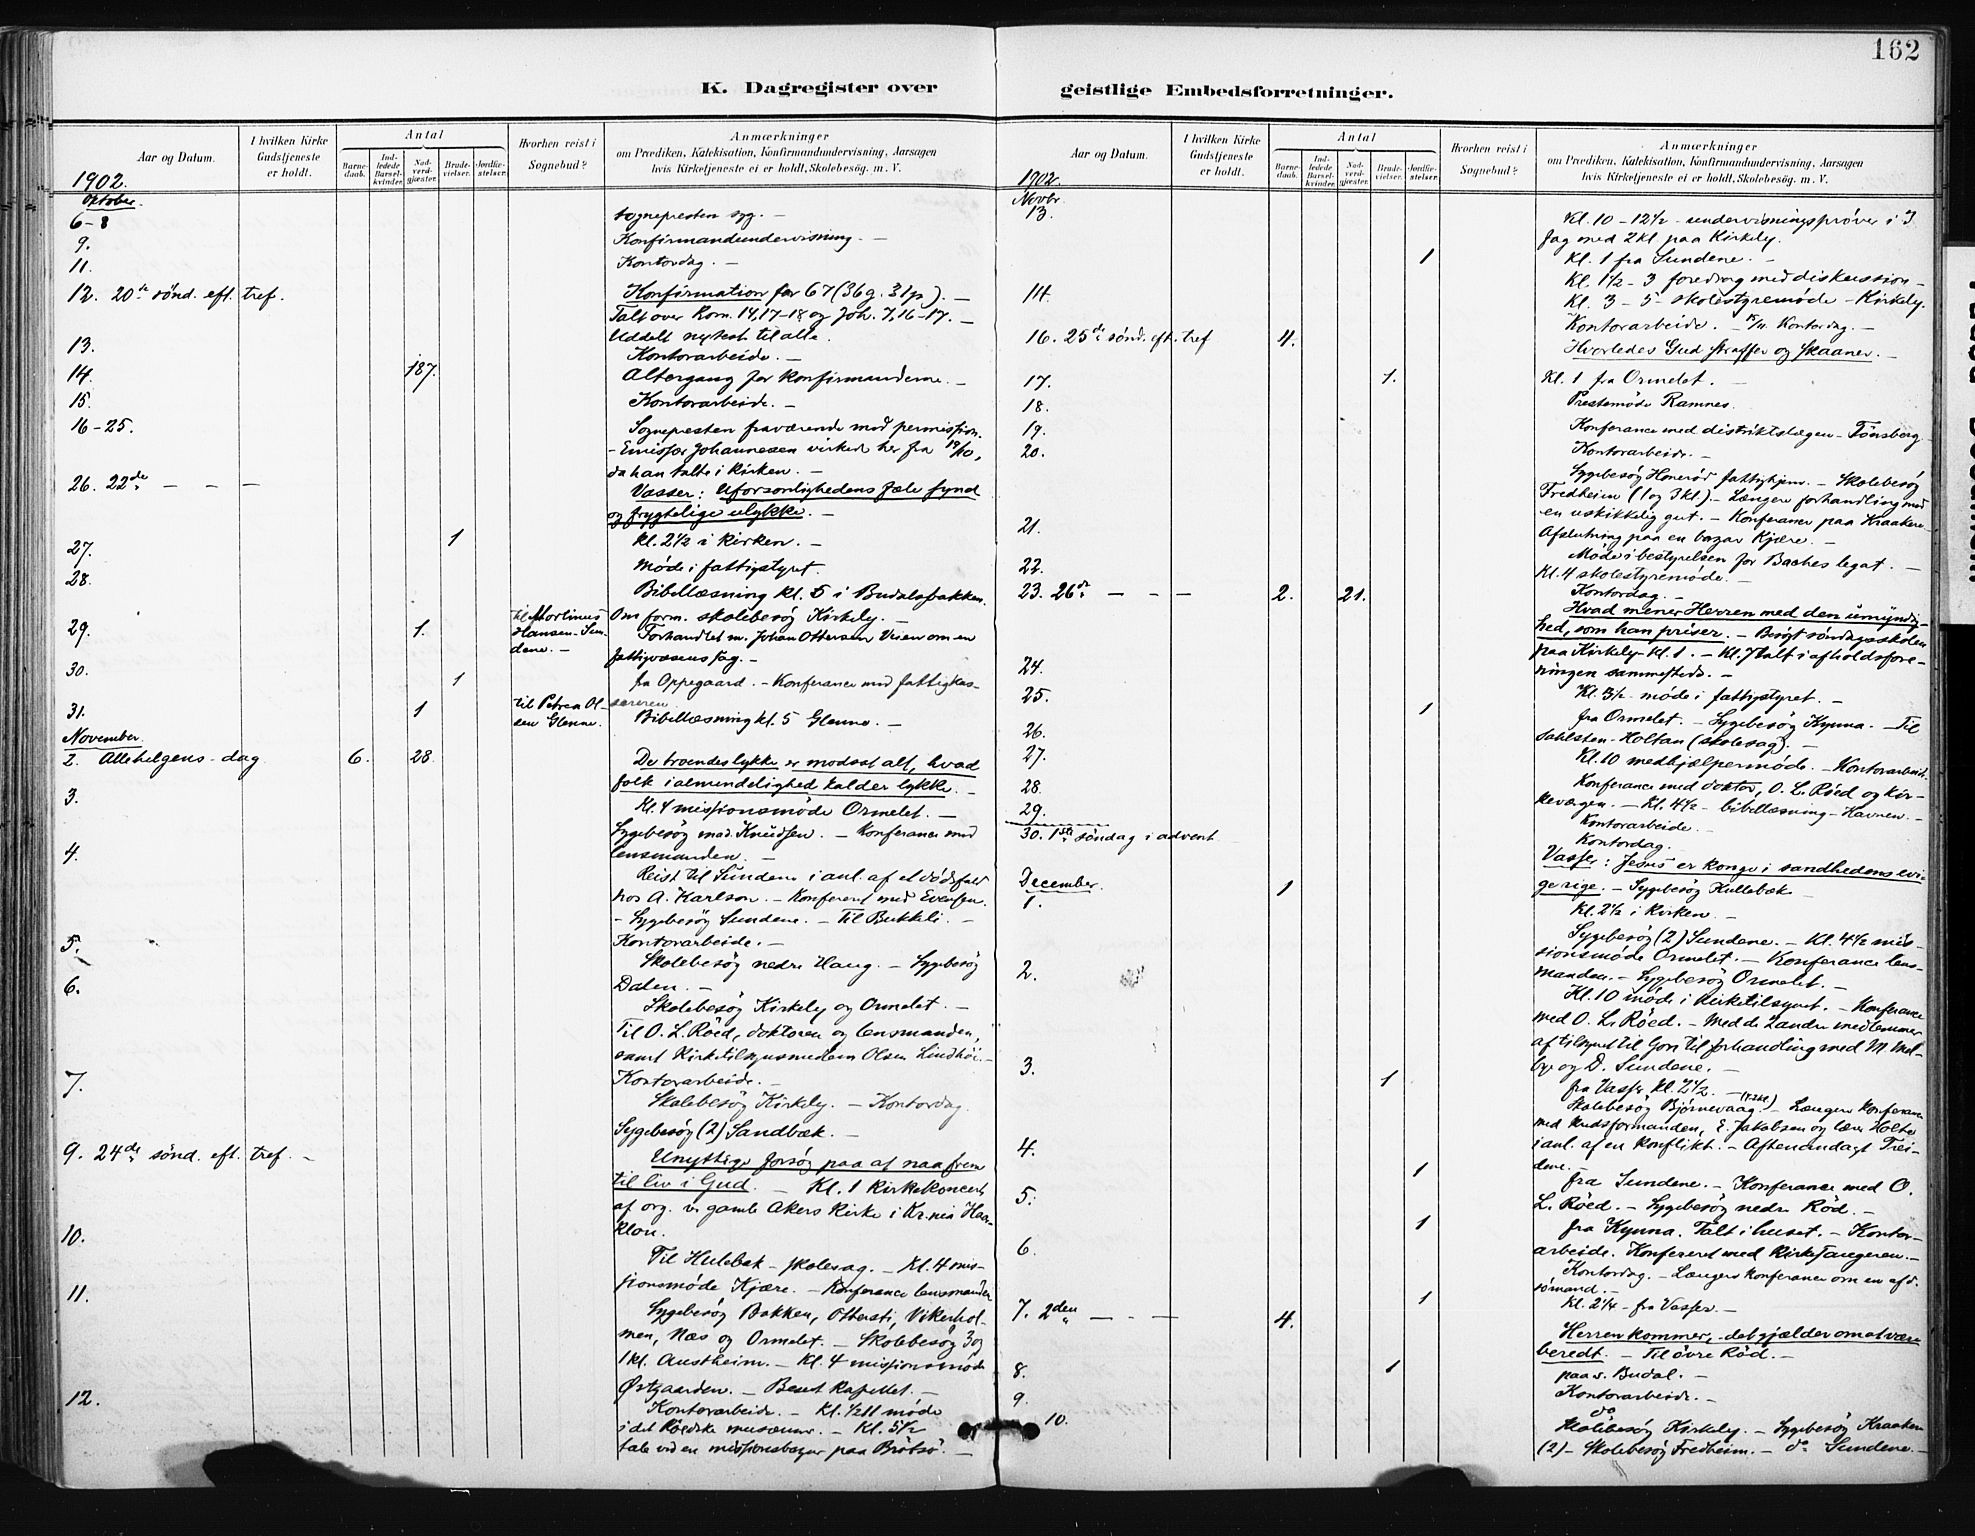 162
K. Dagregister over geistlige Embedsforretninger.
Aar og Datum.
I hvilken Kirke Gudstjeneste er holdt.
Antal
Barne-daab.
Ind-ledede Barsel-kvinder.
Nad-verd-gjæster.
Brude-vielser.
Jordfæ-stelser.
Hvorhen reist i Sognebud?
Anmærkninger
om Prædiken, Katekisation, Konfirmandundervisning, Aarsagen
hvis Kirketjeneste ei er holdt, Skolebesøg. m. V.
1902.
Oktober
6-8 Sognepresten syg. —
9. Konfirmandundervisning. —
11. Kontordag. —
12. 20de sønd. eft. tref. Konfirmation for 67 (36 g. 31 p). —
Talt over Rom. 14,17-18 og Joh. 7,16-17. —
Uddelt nytest. til alle.
13. Kontorarbeide. —
14. 187. Altergang for konfirmanderne. —
15. Kontorarbeide. —
16-25. Sognepresten fraværende med permission.
- Emissær Johannesen virkede her fra 19/10,
da han talte i kirken. —
26. 22de — — — Vasser: Uforsonlighedens fæle synd
og frygtelige ulykke. —
27. 1 kl. 2 1/2 i kirken. —
28. Møde i fattigstyret.
Bibellæsning kl. 5 i Budalsbakken.
29. 1. til Martinus Hansen-Sundene. — Om form. skolebesøg Kirkely. —
Forhandlet m. Johan Ottersen Veien om en
fattigvæsenssag. —
30. 1 fra Oppegaard. — Konferance med fattigkas-
sereren.
31. 1 til Petrea Olsen Glenne. Bibellæsning kl. 5 Glenne. —
November.
2. Allehelgens-dag 6. 28. De troendes lykke er modsat alt, hvad
folk i almindelighed kalder lykke. —
3. Kl. 4 missionsmøde Ormelet. —
Sygebesøg mad. Knudsen. — Konferance med
lensmanden. —
4. Reist til Sundene i anl. af et dødsfald
hos A. Karlson. — Konfereret med Evensen.
- Sygebesøg Sundene. — Til Bekkeli.
5. Kontorarbeide. —
Skolebesøg nedre Haug. — Sygebesøg
6. Dalen. —
Skolebesøg Kirkely og Ormelet. —
Til O. L. Røed, doktoren og lensmanden,
samt kirketilsynsmedlem Olsen Lindhøi. —
7. Kontorarbeide. —
Skolebesøg Kirkely. — Kontordag.
Sygebesøg (2) Sandbæk. —
9. 24de sønd. eft. tref. — Unyttige forsøg paa at naa frem
til liv i Gud. — Kl. 1 kirkekoncert
af org. v. gamle Akers kirke i Kr.nia Haar-
klou.
10. Til Hulebak - skolesag. — Kl. 4 mis-
sionsmøde Kjære. — Konferance lensmanden
11. Sygebesøg Bakken, Ottersti, Vikerhol-
men, Næs og Ormelet. — Skolebesøg 3 og
1 kl. Austheim. — Kl. 4 missionsmøde
Østgaarden. — Beset kapellet. —
12. Kontorarbeide. — Kl. 1/2 11 møde
i det Røedske musæum. — Kl. 5 1/2
tale ved en missionsbazar paa Brøtsø. —
Aar og Datum.
I hvilken Kirke Gudstjeneste er holdt.
Antal
Barne-daab.
Ind-ledede Barsel-kvinder.
Nad-verd-gjæster.
Brude-vielser.
Jordfæ-stelser.
Hvorhen reist i Sognebud?
Anmærkninger
om Prædiken, Katekisation, Konfirmandundervisning, Aarsagen
hvis Kirketjeneste ei er holdt, Skolebesøg. m. V.
1902.
Novbr.
13. Kl. 10 - 12 1/2 - undervisningsprøver i 3
fag med 2 kl. paa Kirkely.
1 Kl. 1 fra Sundene. —
Kl. 1 1/2 - 3 foredrag med diskussion -
14. Kl. 3 - 5 - skolestyremøde - Kirkely.
Kontorarbeide. — 15/11. Kontordag. —
16. 25de sønd. eft. tref 4. Hvorledes Gud straffer og skaaner. —
17. 1. Kl. 1 fra Ormelet. —
18. Prestemøde Ramnes.
19. Konferance med distriktslægen - Tønsberg
20. Kontorarbeide. —
Sygebesøg Honerød fattighjem. — Skolebesøg
Fredheim (1 og 3 kl.) - Længere forhandling med
en uskikkelig gut. — Konferance paa Kraakere
21. Afslutning paa en bazar Kjære. —
Møde i bestyrelsen for Baches legat. —
22. Kl. 4 skolestyremøde. —
Kontordag. —
23. 26de — — — 2. 21. Hvad mener Herren med den umyndig-
hed, som han priser. — Besøgt søndagsskolen
paa Kirkely kl. 1. — Kl. 7 talt i afholdsfore-
24. ningen sammesteds. —
25. Kl. 3 1/2 - møde i fattigstyret. —
1 fra Ormelet. — Sygebesøg Kynna. — Til
26. Dahlsten - Holtan (skolesag). —
27. Kl. 10 medhjælpermøde. — Kontorarbeide.
28. Konferance med doktor, O. L. Røed og kir-
keværgen. — Kl. 4 1/2 - bibellæsning - Havnen. —
29. Kontorarbeide. —
Kontordag.
30. 1ste søndag i advent Vasser: Jesus er konge i sandhedens evi-
ge rige. — Sygebesøg Hullebæk —
December.
1. 1 Kl. 2 1/2 i kirken. —
Sygebesøg (2) Sundene. — Kl. 4 1/2 mis-
sionsmøde Ormelet. — Konferance lens-
2. manden. — Sygebesøg Ormelet. —
Kl. 10 møde i kirketilsynet. — Konferance
med O. L. Røed. — Med de andre medlemmer
af tilsynet til Gori til forhandling med M. Mel-
3. bye og D. Sundene. —
1 fra Vasser kl. 2 1/2. —
Skolebesøg Bjørnevaag. (1. 2 kl.) — Længere konferance
med kredsformanden, E. Jakobsen og lærer Holte
4. i anl. af en konflikt. — Aftenandagt Trei-
dene. —
1 fra Sundene. — Konferance med O.
5. L. Røed. — Sygebesøg nedre Rød. —
1 fra Kynna. Talt i huset. — Kontor-
6. arbeide. Konfereret med kirkesangeren. —
Kontordag. — Længere konferance om en afd.
sømand. —
1 Kl. 2 1/4 - fra Vasser. —
7. 2den — — — 4. Herren kommer, - det gjælder om at være
beredt. — Til øvre Rød. —
8. 1 paa s. Budal. —
9. Kontorarbeide. —
10. do
Skolebesøg Kirkely. — Sygebesøg Kraakere
(2) - Skolebesøg Fredheim. — do Sundene. —